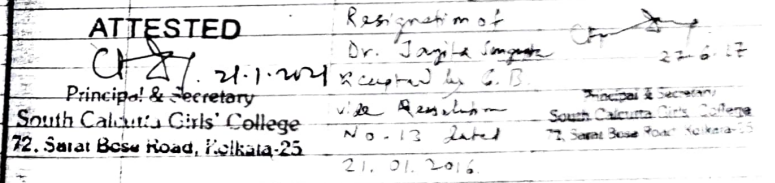 ATTESTED
21.1.2021
Principal & Secretary
South Calcutta Girls' College
72, Sarat Bose Road, Kolkata-25
Resignation of
Dr. Jayita
accepted by G.B.
vide Resolution
No-13 dated
21.01.2016.
27.6.17
Principal & Secretary
South Calcutta Girls' College
72, Sarat Bose Road, Kolkata-25